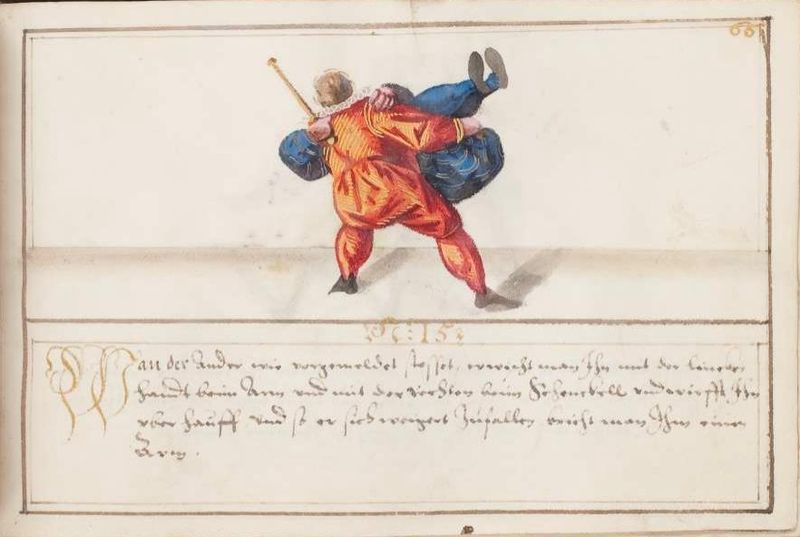 66
No: 15:
Wan der Ander wie vorgemeldet stosset, erwischt man Ihn mit der lincken
handt beim Arm und mit der rechten beim Schenckell und wirfft Ihn
vber hauff und so er sich weigert zufallen bricht man Ihm einen
Arm.